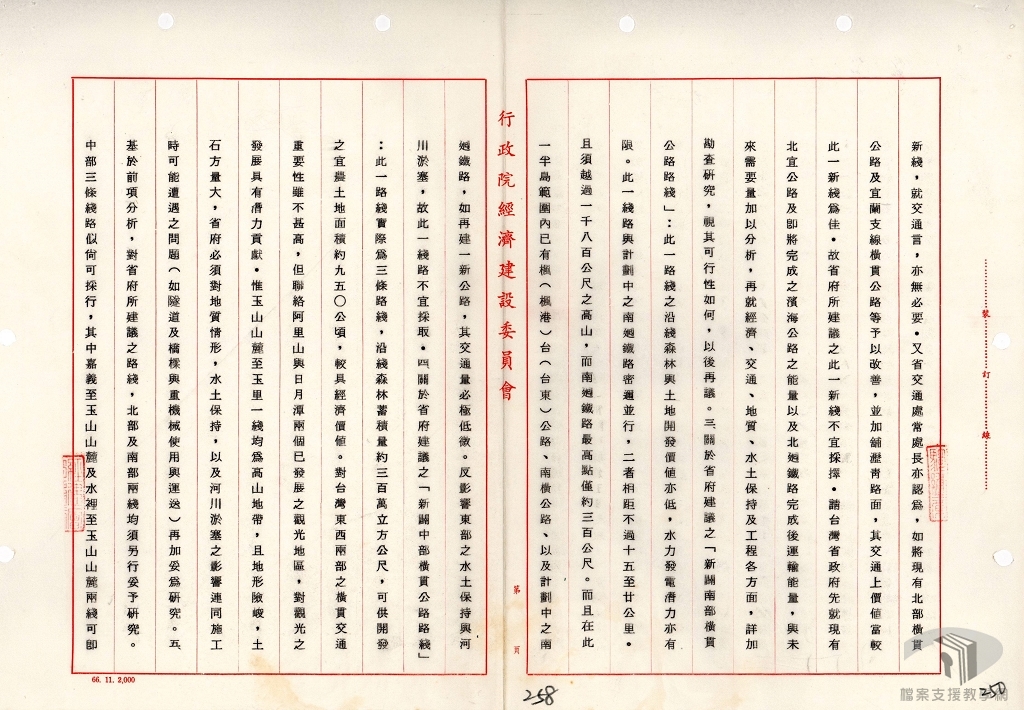 新綫，就交通言，亦無必要。又省交通處常處長亦認爲，如將現有北部橫貫
公路及宜蘭支線橫貫公路等予以改善，並加舖瀝靑路面，其交通上價值當較
此一新綫爲佳。故省府所建議之此一新綫不宜採擇。請台灣省政府先就現有
北宜公路及即將完成之濱海公路之能量以及北廻鐵路完成後運輸能量，與未
來需要量加以分析，再就經濟、交通、地質、水土保持及工程各方面，詳加
勘查研究，視其可行性如何，以後再議。三關於省府建議之「新闢南部橫貫
公路路綫」：此一路綫之沿綫森林與土地開發價值亦低，水力發電潛力亦有
限。此一綫路與計劃中之南廻鐵路密邇並行，二者相距不過十五至廿公里。
且須越過一千八百公尺之高山，而南廻鐵路最高點僅約三百公尺。而且在此
一半島範圍內已有楓（楓港）台（台東）公路、南橫公路、以及計劃中之南
行政院經濟建設委員會
第 頁
廻鐵路，如再建一新公路，其交通量必極低微。反影響東部之水土保持與河
川淤塞，故此一綫路不宜採取。四關於省府建議之「新闢中部橫貫公路路綫」
：此一路綫實際爲三條路綫，沿綫森林蓄積量約三百萬立方公尺，可供開發
之宜農土地面積約九五〇公頃，較具經濟價値。對台灣東西兩部之橫貫交通
重要性雖不甚高，但聯絡阿里山與日月潭兩個已發展之觀光地區，對觀光之
發展具有潛力貢獻。惟玉山山麓至玉里一綫均爲高山地帶，且地形險峻，土
石方量大，省府必須對地質情形，水土保持，以及河川淤塞之影響連同施工
時可能遭遇之問題（如隧道及橋樑與重機械使用與運送）再加妥爲研究。五
基於前項分析，對省府所建議之路綫，北部及南部兩綫均須另行妥予研究。
中部三條綫路似尙可採行，其中嘉義至玉山山麓及水裡至玉山山麓兩綫可即
裝 訂 線
66. 11. 2,000
258
250
檔案支援教學網